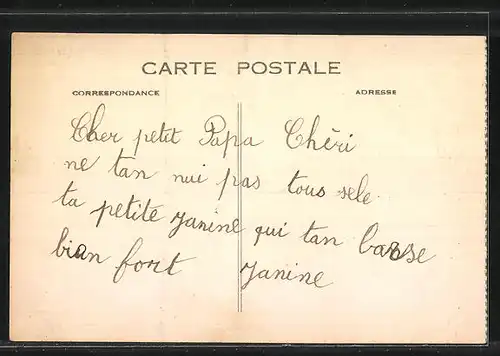 CARTE POSTALE
CORRESPONDANCE ADRESSE
Cher petit Papa Chéri
ne tan nui pas tous sele
ta petite Janine qui tan barse
bian fort Janine